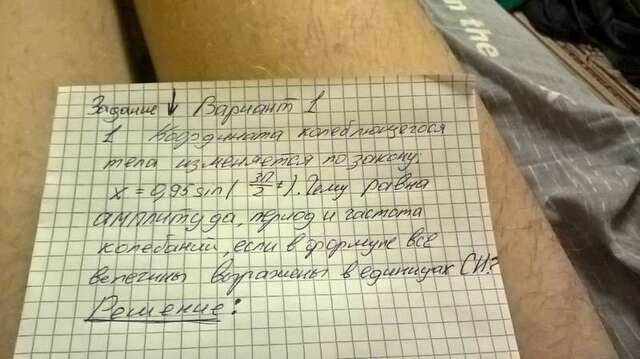 in the
Задание ↓ Вариант 1
1 Координата колеблющегося
тела изменяется по закону:
x = 0,95 sin( 3π/2 t). Чему равна
амплитуда, период и частота
колебаний, если в формуле все
величины выражены в единицах СИ?
Решение: